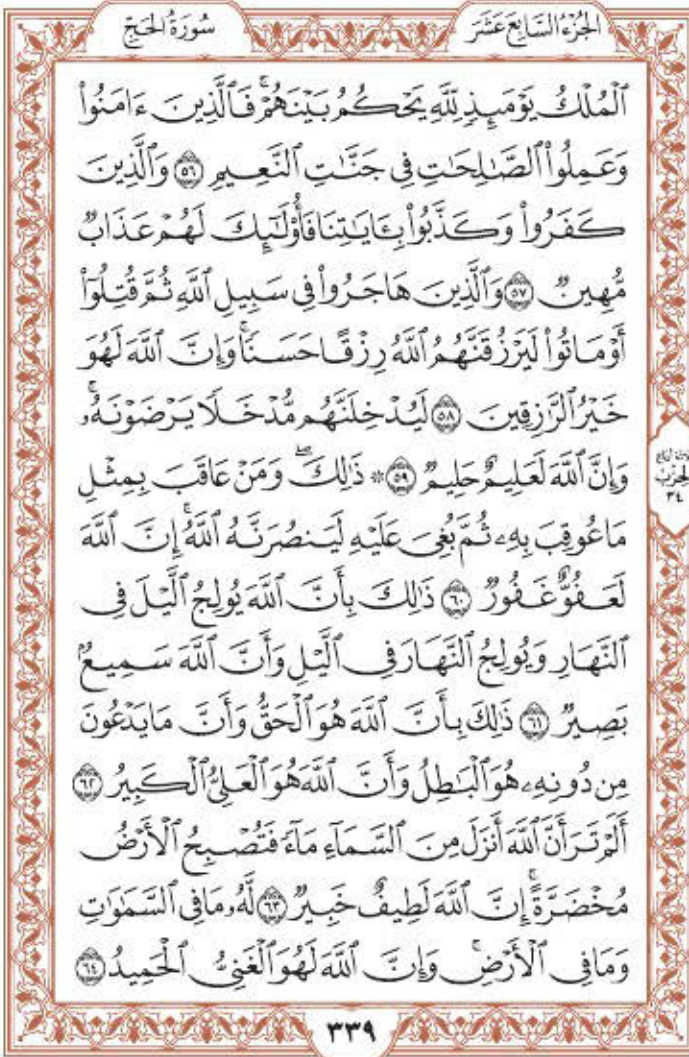 الجُزْءُ السَّابِعَ عَشَرَ
سُورَةُ الحَجِّ
ٱلْمُلْكُ يَوْمَئِذٍ لِّلَّهِ يَحْكُمُ بَيْنَهُمْۚ فَٱلَّذِينَ ءَامَنُوا۟
وَعَمِلُوا۟ ٱلصَّٰلِحَٰتِ فِى جَنَّٰتِ ٱلنَّعِيمِ ٥٦ وَٱلَّذِينَ
كَفَرُوا۟ وَكَذَّبُوا۟ بِـَٔايَٰتِنَا فَأُو۟لَٰٓئِكَ لَهُمْ عَذَابٌ
مُّهِينٌ ٥٧ وَٱلَّذِينَ هَاجَرُوا۟ فِى سَبِيلِ ٱللَّهِ ثُمَّ قُتِلُوٓا۟
أَوْ مَاتُوا۟ لَيَرْزُقَنَّهُمُ ٱللَّهُ رِزْقًا حَسَنًاۚ وَإِنَّ ٱللَّهَ لَهُوَ
خَيْرُ ٱلرَّٰزِقِينَ ٥٨ لَيُدْخِلَنَّهُم مُّدْخَلًا يَرْضَوْنَهُۥۚ
وَإِنَّ ٱللَّهَ لَعَلِيمٌ حَلِيمٌ ٥٩ ۞ ذَٰلِكَۖ وَمَنْ عَاقَبَ بِمِثْلِ
مَا عُوقِبَ بِهِۦ ثُمَّ بُغِىَ عَلَيْهِ لَيَنصُرَنَّهُ ٱللَّهُۚ إِنَّ ٱللَّهَ
لَعَفُوٌّ غَفُورٌ ٦٠ ذَٰلِكَ بِأَنَّ ٱللَّهَ يُولِجُ ٱلَّيْلَ فِى
ٱلنَّهَارِ وَيُولِجُ ٱلنَّهَارَ فِى ٱلَّيْلِ وَأَنَّ ٱللَّهَ سَمِيعٌۢ
بَصِيرٌ ٦١ ذَٰلِكَ بِأَنَّ ٱللَّهَ هُوَ ٱلْحَقُّ وَأَنَّ مَا يَدْعُونَ
مِن دُونِهِۦ هُوَ ٱلْبَٰطِلُ وَأَنَّ ٱللَّهَ هُوَ ٱلْعَلِىُّ ٱلْكَبِيرُ ٦٢
أَلَمْ تَرَ أَنَّ ٱللَّهَ أَنزَلَ مِنَ ٱلسَّمَآءِ مَآءً فَتُصْبِحُ ٱلْأَرْضُ
مُخْضَرَّةًۗ إِنَّ ٱللَّهَ لَطِيفٌ خَبِيرٌ ٦٣ لَّهُۥ مَا فِى ٱلسَّمَٰوَٰتِ
وَمَا فِى ٱلْأَرْضِۚ وَإِنَّ ٱللَّهَ لَهُوَ ٱلْغَنِىُّ ٱلْحَمِيدُ ٦٤
الحِزْب
٣٤
٣٣٩